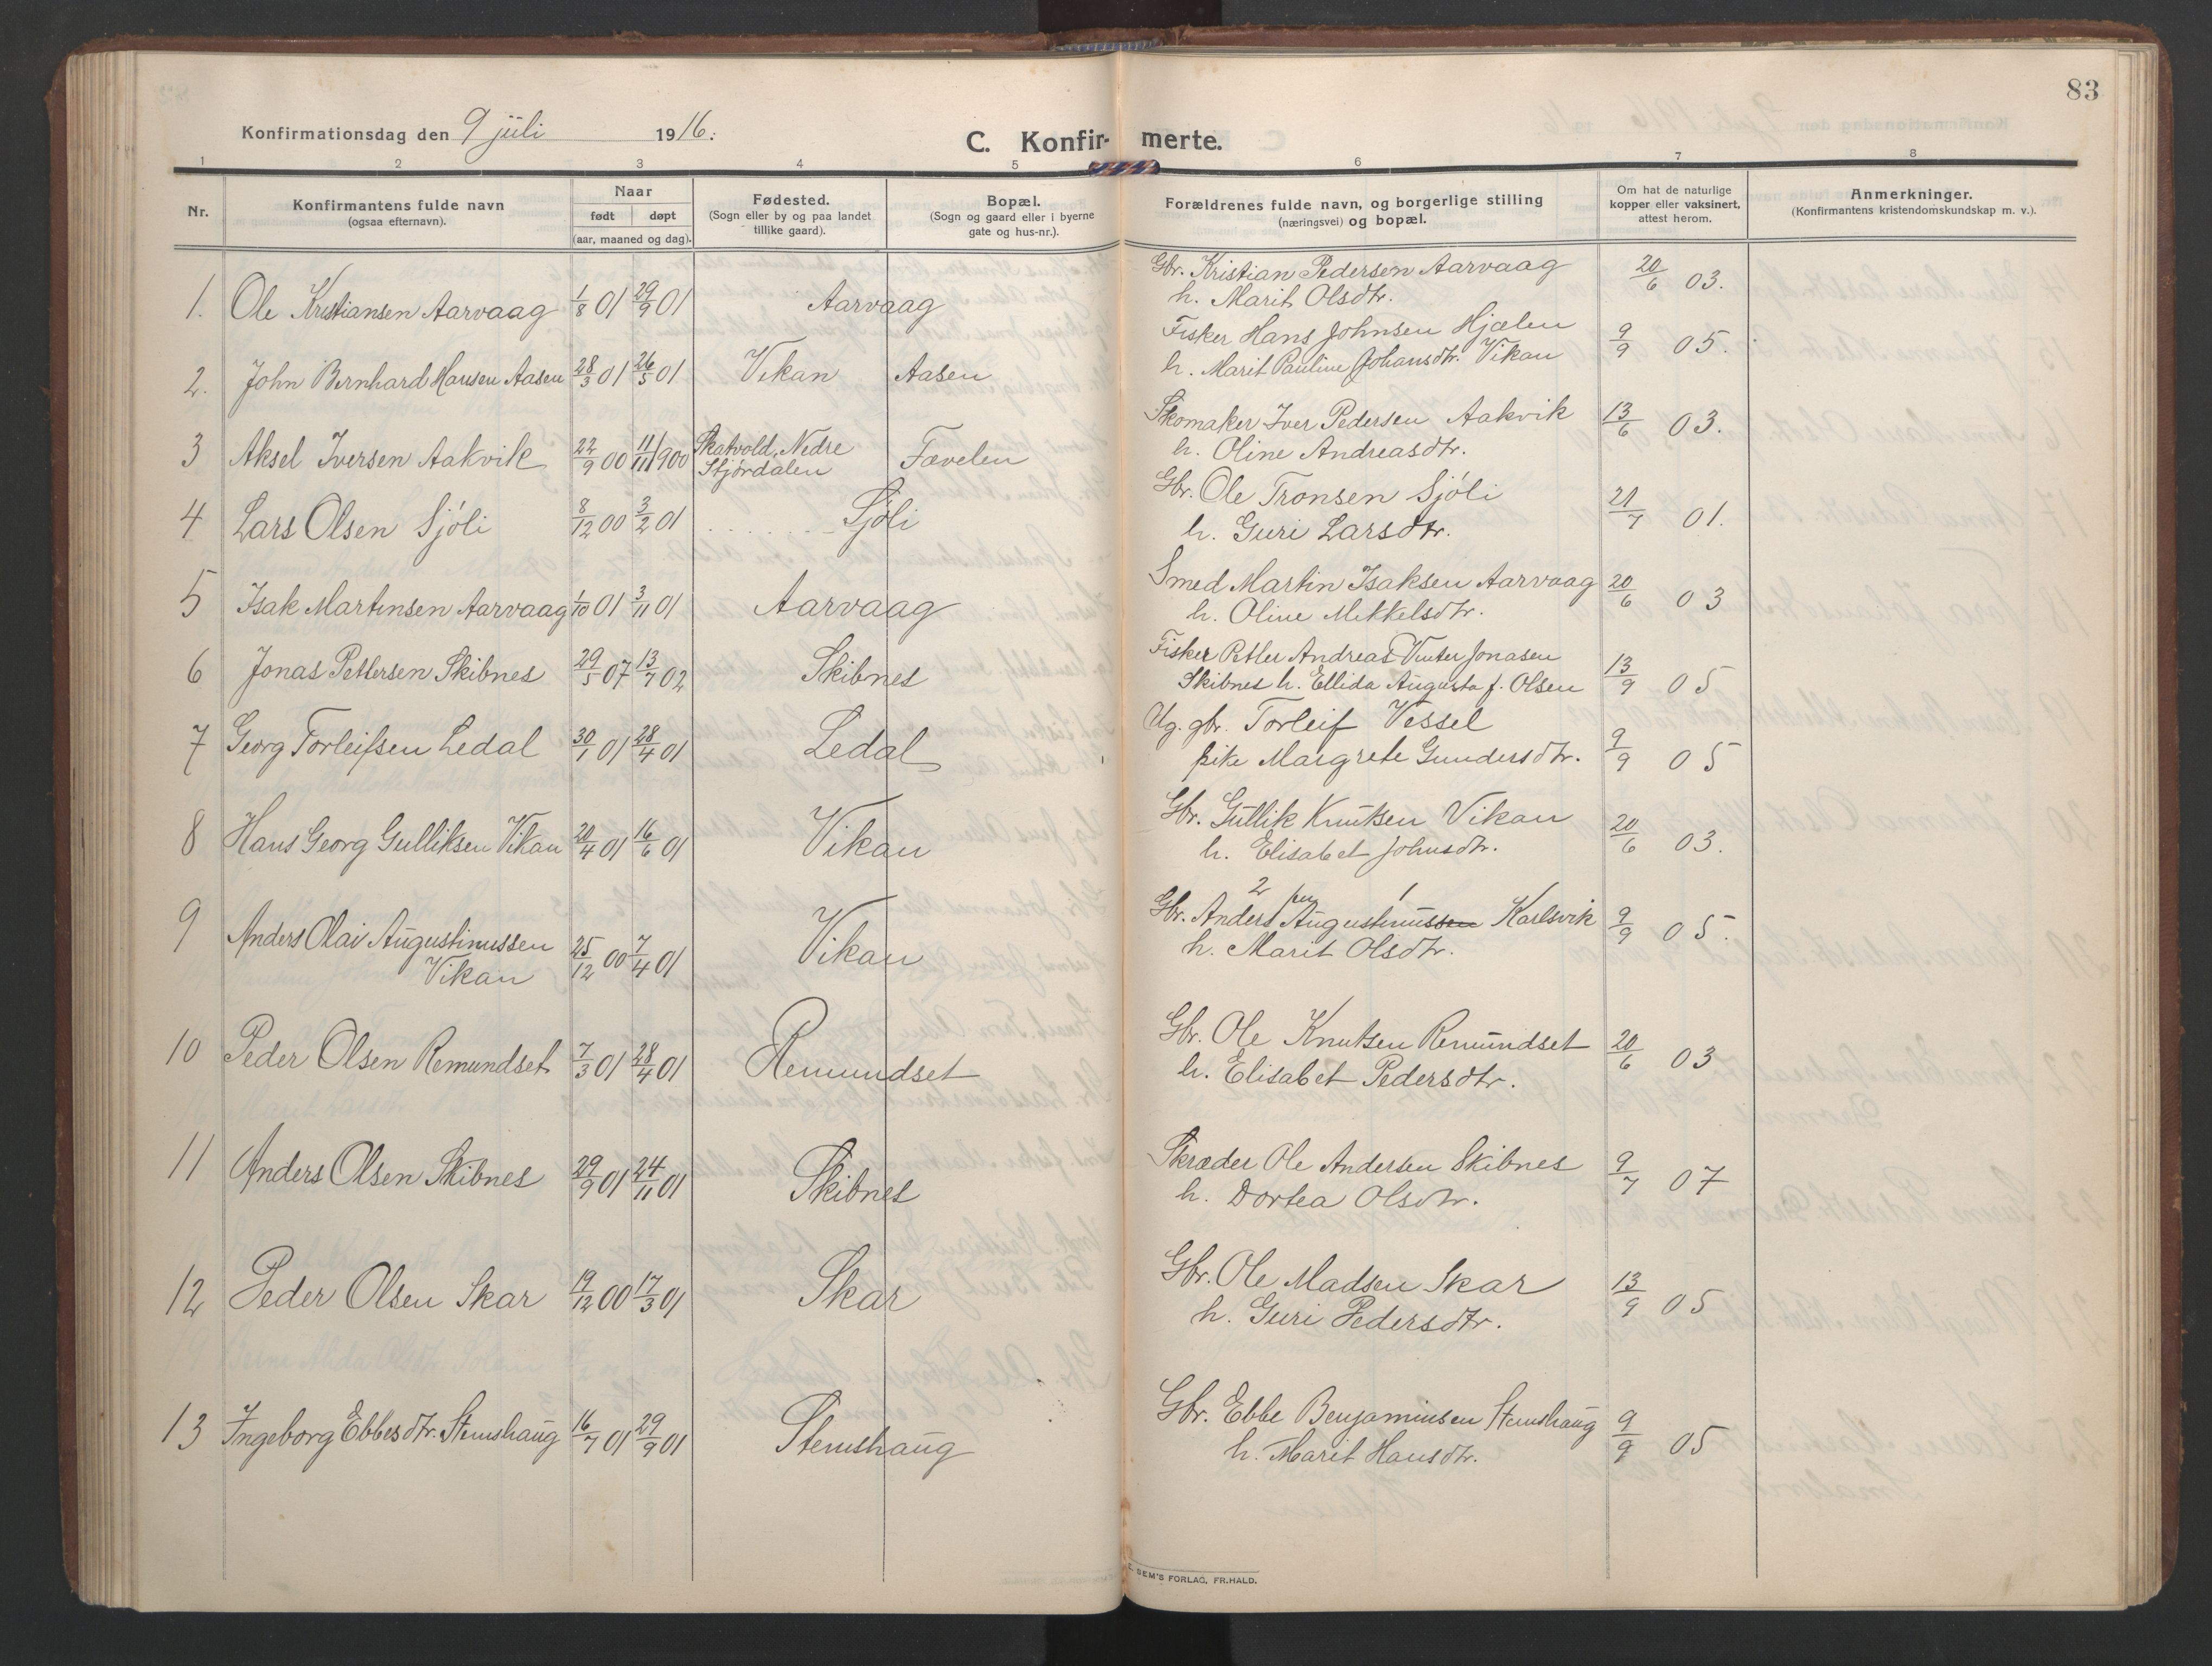 83
Konfirmationsdag den 9 juli 1916.
C. Konfir- merte.
1 2 3 4 5 6 7 8
Nr.
Konfirmantens fulde navn
(ogsaa efternavn).
Naar
født døpt
(aar, maaned og dag).
Fødested.
(Sogn eller by og paa landet
tillike gaard).
Bopæl.
(Sogn og gaard eller i byerne
gate og hus-nr.).
Forældrenes fulde navn, og borgerlige stilling
(næringsvei) og bopæl.
Om hat de naturlige
kopper eller vaksinert,
attest herom.
Anmerkninger.
(Konfirmantens kristendomskundskap m. v.).
1. Ole Kristiansen Aarvaag 1/8 01 29/9 01 Aarvaag
Gbr. Kristian Pedersen Aarvaag
h. Marit Olsdtr.
20/6 03.
2. John Bernhard Hansen Aasen 28/3 01 26/5 01 Vikan Aasen
Fisker Hans Johnsen Hjælen
h. Marit Pauline Johansdtr. Vikan
9/9 05.
3 Aksel Iversen Aakvik 22/9 00 11/11 1900 Skatvold, Nedre
Stjørdalen
Fævelen
Skomaker Iver Pedersen Aakvik
h. Oline Andreasdtr.
13/6 03.
4 Lars Olsen Sjøli 8/12 00 3/2 01 Sjøli
Gbr. Ole Tronsen Sjøli
h. Guri Larsdtr.
21/7 01.
5 Isak Martinsen Aarvaag 1/10 01 3/11 01 Aarvaag
Smed Martin Isaksen Aarvaag
h. Oline Mikkelsdtr.
20/6 03
6 Jonas Pettersen Skibnes 29/5 07 13/7 02 Skibnes
Fisker Petter Andreas Vinter Jonasen
Skibnes h. Ellida Augusta f. Olsen
13/9 05
7 Georg Torleifsen Ledal 30/1 01 28/4 01 Ledal
Ug. gbr. Torleif Vessel
pike Margrete Gundersdtr.
9/9 05
8 Hans Georg Gulliksen Vikan 20/4 01 16/6 01 Vikan
Gbr. Gullik Knutsen Vikan
h. Elisabet Johnsdtr.
20/6 03.
9 Anders Olai Augustinussen
Vikan
25/12 00 7/4 01 Vikan
2 1
Gbr. Anders Augustinussen Karlsvik
h. Marit Olsdtr.
9/9 05.
10 Peder Olsen Remundset 7/3 01 28/4 01 Remundset
Gbr. Ole Knutsen Remundset
h. Elisabet Pedersdtr.
20/6 03
11 Anders Olsen Skibnes 29/9 01 24/11 01 Skibnes
Skræder Ole Andersen Skibnes
h. Dortea Olsdtr.
9/7 07
12 Peder Olsen Skar 19/12 00 17/3 01 Skar
Gbr. Ole Madsen Skar
h. Guri Pedersdtr.
13/9 05
13 Ingeborg Ebbesdtr. Stemshaug 16/7 01 29/9 01 Stemshaug
Gbr. Ebbe Benjaminsen Stemshaug
h. Marit Hansdtr.
9/9 05
SEM'S FORLAG, FR.HALD.